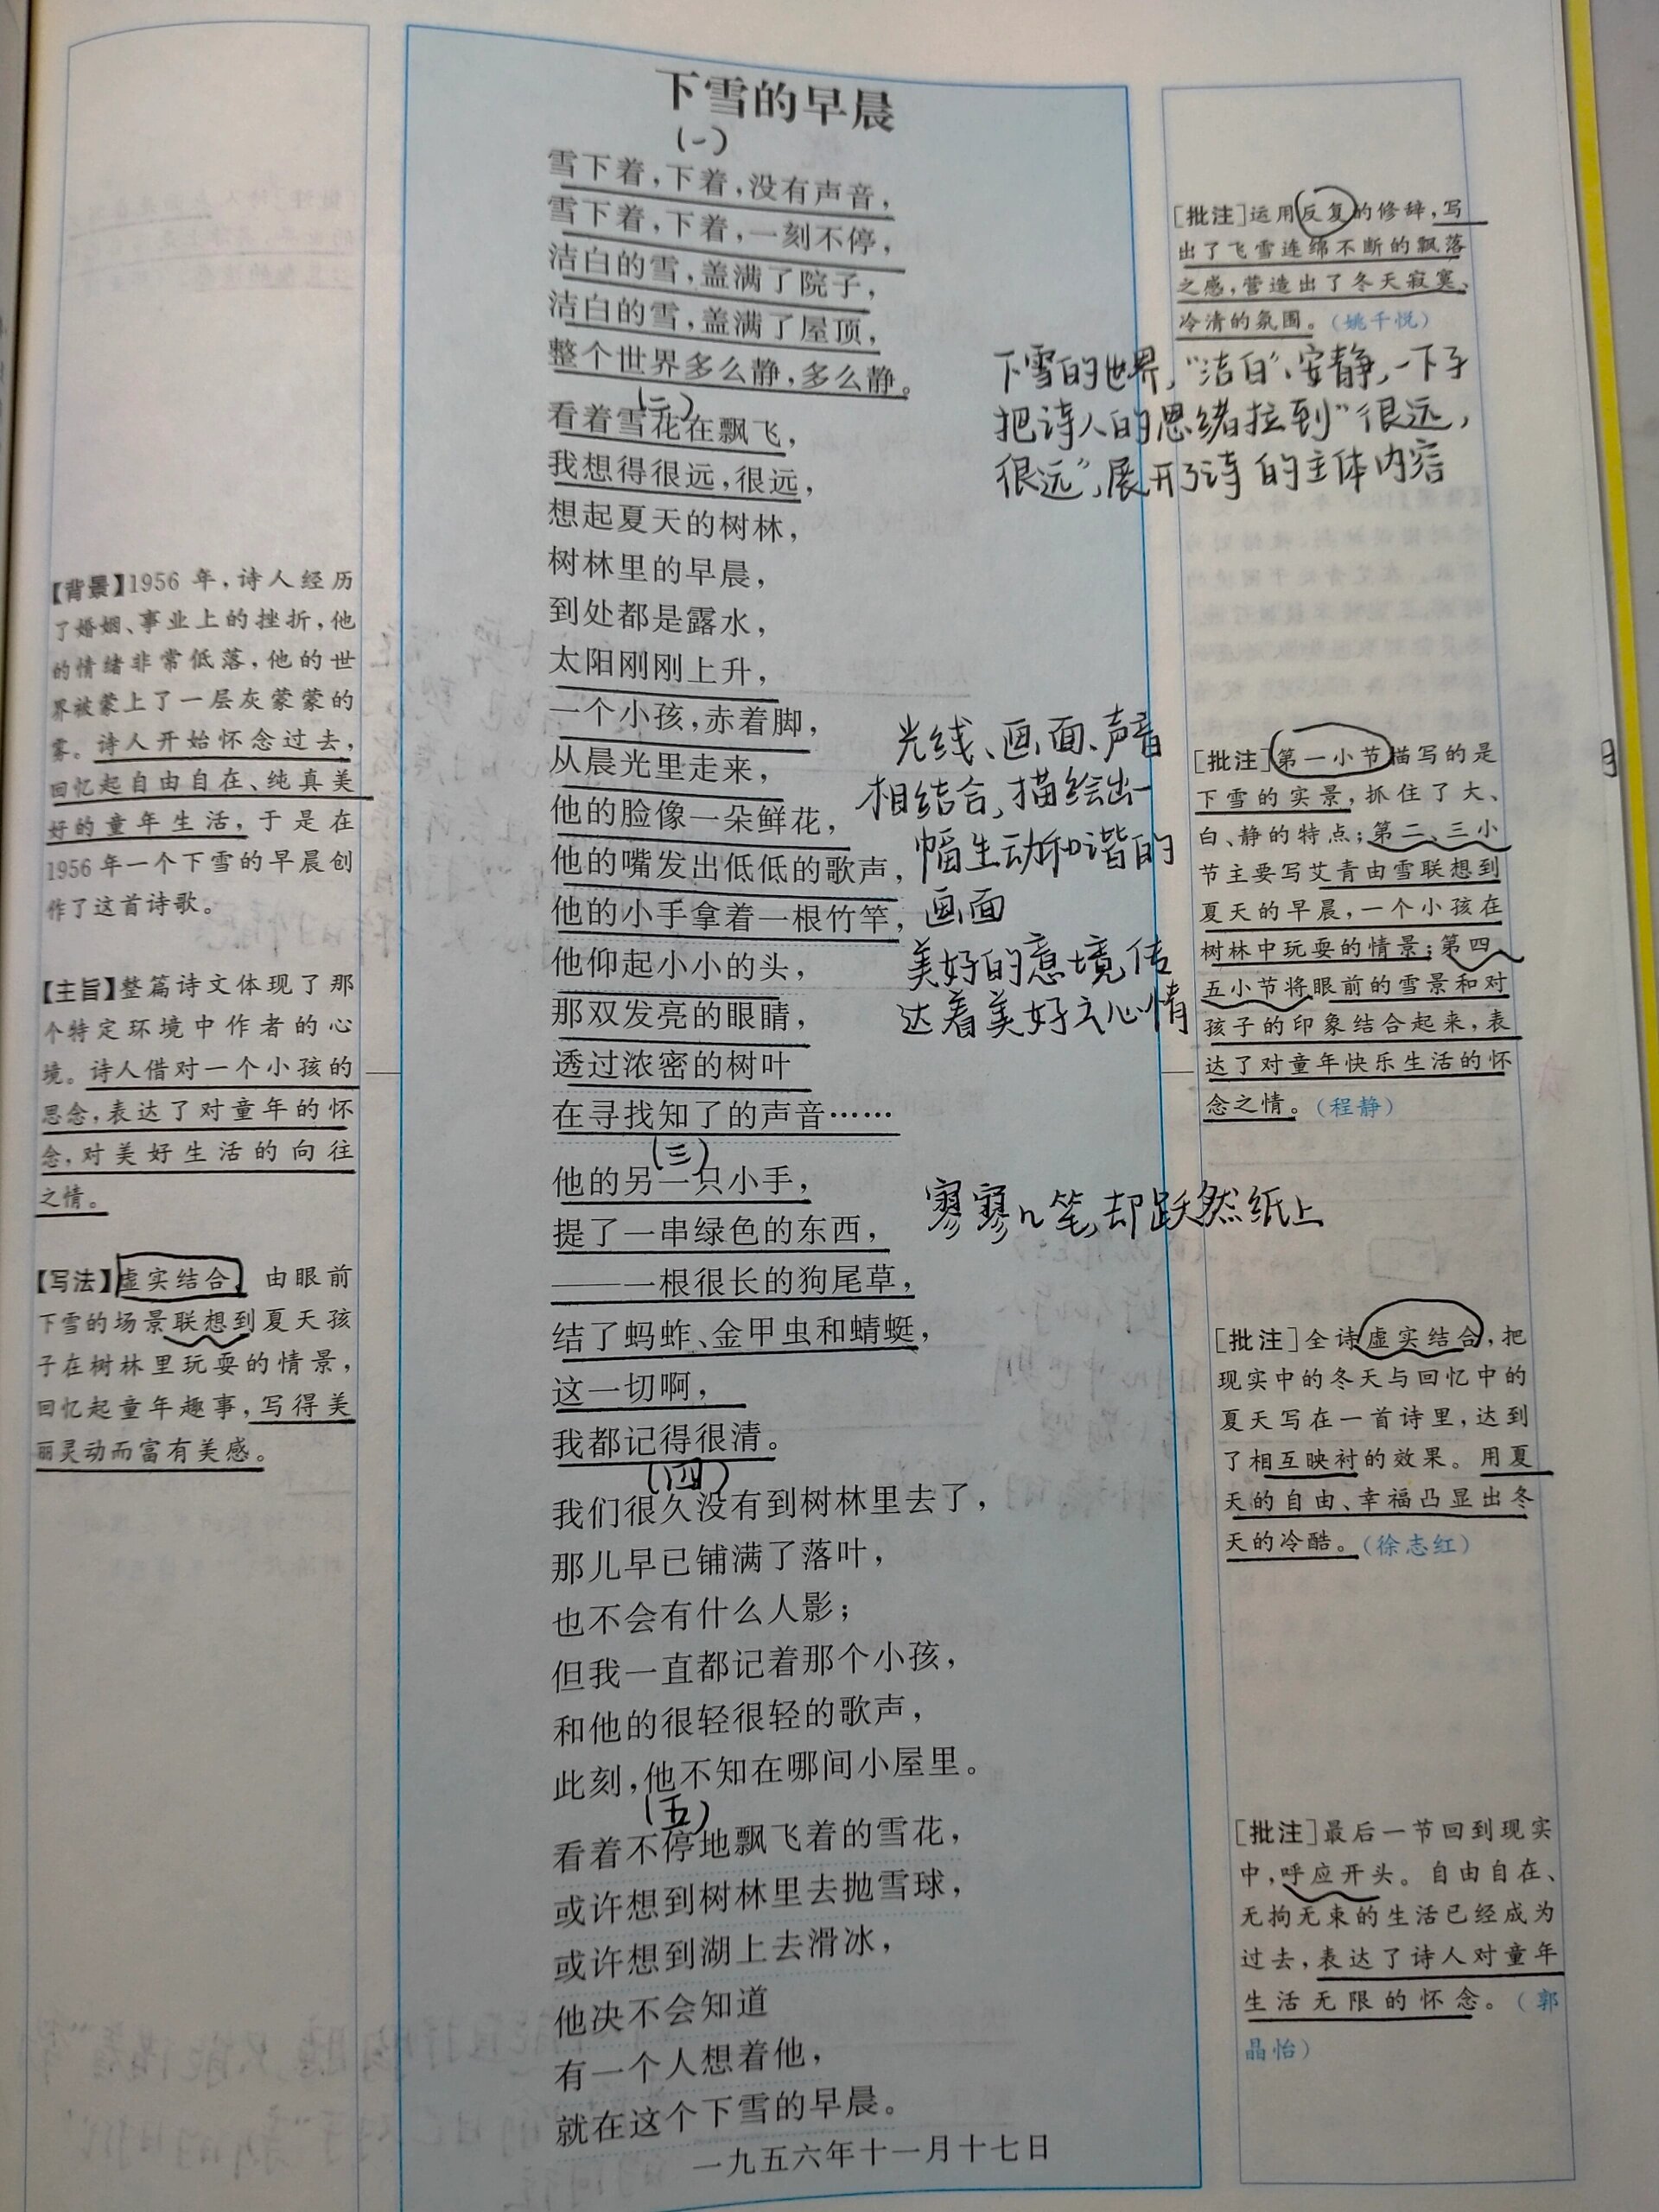 下雪的早晨
(一)
雪下着,下着,没有声音,
雪下着,下着,一刻不停,
洁白的雪,盖满了院子,
洁白的雪,盖满了屋顶,
整个世界多么静,多么静。
(二)
看着雪花在飘飞,
我想得很远,很远,
想起夏天的树林,
树林里的早晨,
到处都是露水,
太阳刚刚上升,
一个小孩,赤着脚,
从晨光里走来,
他的脸像一朵鲜花,
他的嘴发出低低的歌声,
他的小手拿着一根竹竿,
他仰起小小的头,
那双发亮的眼睛,
透过浓密的树叶
在寻找知了的声音……
(三)
他的另一只小手,
提了一串绿色的东西,
——一根很长的狗尾草,
结了蚂蚱、金甲虫和蜻蜓,
这一切啊,
我都记得很清。
(四)
我们很久没有到树林里去了,
那儿早已铺满了落叶,
也不会有什么人影;
但我一直都记着那个小孩,
和他的很轻很轻的歌声,
此刻,他不知在哪间小屋里。
(五)
看着不停地飘飞着的雪花,
或许想到树林里去抛雪球,
或许想到湖上去滑冰,
他决不会知道
有一个人想着他,
就在这个下雪的早晨。
一九五六年十一月十七日
【背景】1956 年,诗人经历
了婚姻、事业上的挫折,他
的情绪非常低落,他的世
界被蒙上了一层灰蒙蒙的
雾。诗人开始怀念过去,
回忆起自由自在、纯真美
好的童年生活,于是在
1956年一个下雪的早晨创
作了这首诗歌。
【主旨】整篇诗文体现了那
个特定环境中作者的心
境。诗人借对一个小孩的
思念,表达了对童年的怀
念,对美好生活的向往
之情。
【写法】虚实结合。由眼前
下雪的场景联想到夏天孩
子在树林里玩耍的情景,
回忆起童年趣事,写得美
丽灵动而富有美感。
[批注]运用反复的修辞,写
出了飞雪连绵不断的飘落
之感,营造出了冬天寂寞、
冷清的氛围。(姚千悦)
下雪的世界,"洁白"、安静,一下子
把诗人的思绪拉到"很远,
很远",展开了诗的主体内容
光线、画面、声音
相结合,描绘出一
幅生动和谐的
画面
美好的意境传
达着美好之心情
[批注]第一小节描写的是
下雪的实景,抓住了大、
白、静的特点;第二、三小
节主要写艾青由雪联想到
夏天的早晨,一个小孩在
树林中玩耍的情景;第四、
五小节将眼前的雪景和对
孩子的印象结合起来,表
达了对童年快乐生活的怀
念之情。(程静)
寥寥几笔,却跃然纸上
[批注]全诗虚实结合,把
现实中的冬天与回忆中的
夏天写在一首诗里,达到
了相互映衬的效果。用夏
天的自由、幸福凸显出冬
天的冷酷。(徐志红)
[批注]最后一节回到现实
中,呼应开头。自由自在、
无拘无束的生活已经成为
过去,表达了诗人对童年
生活无限的怀念。(郭
晶怡)